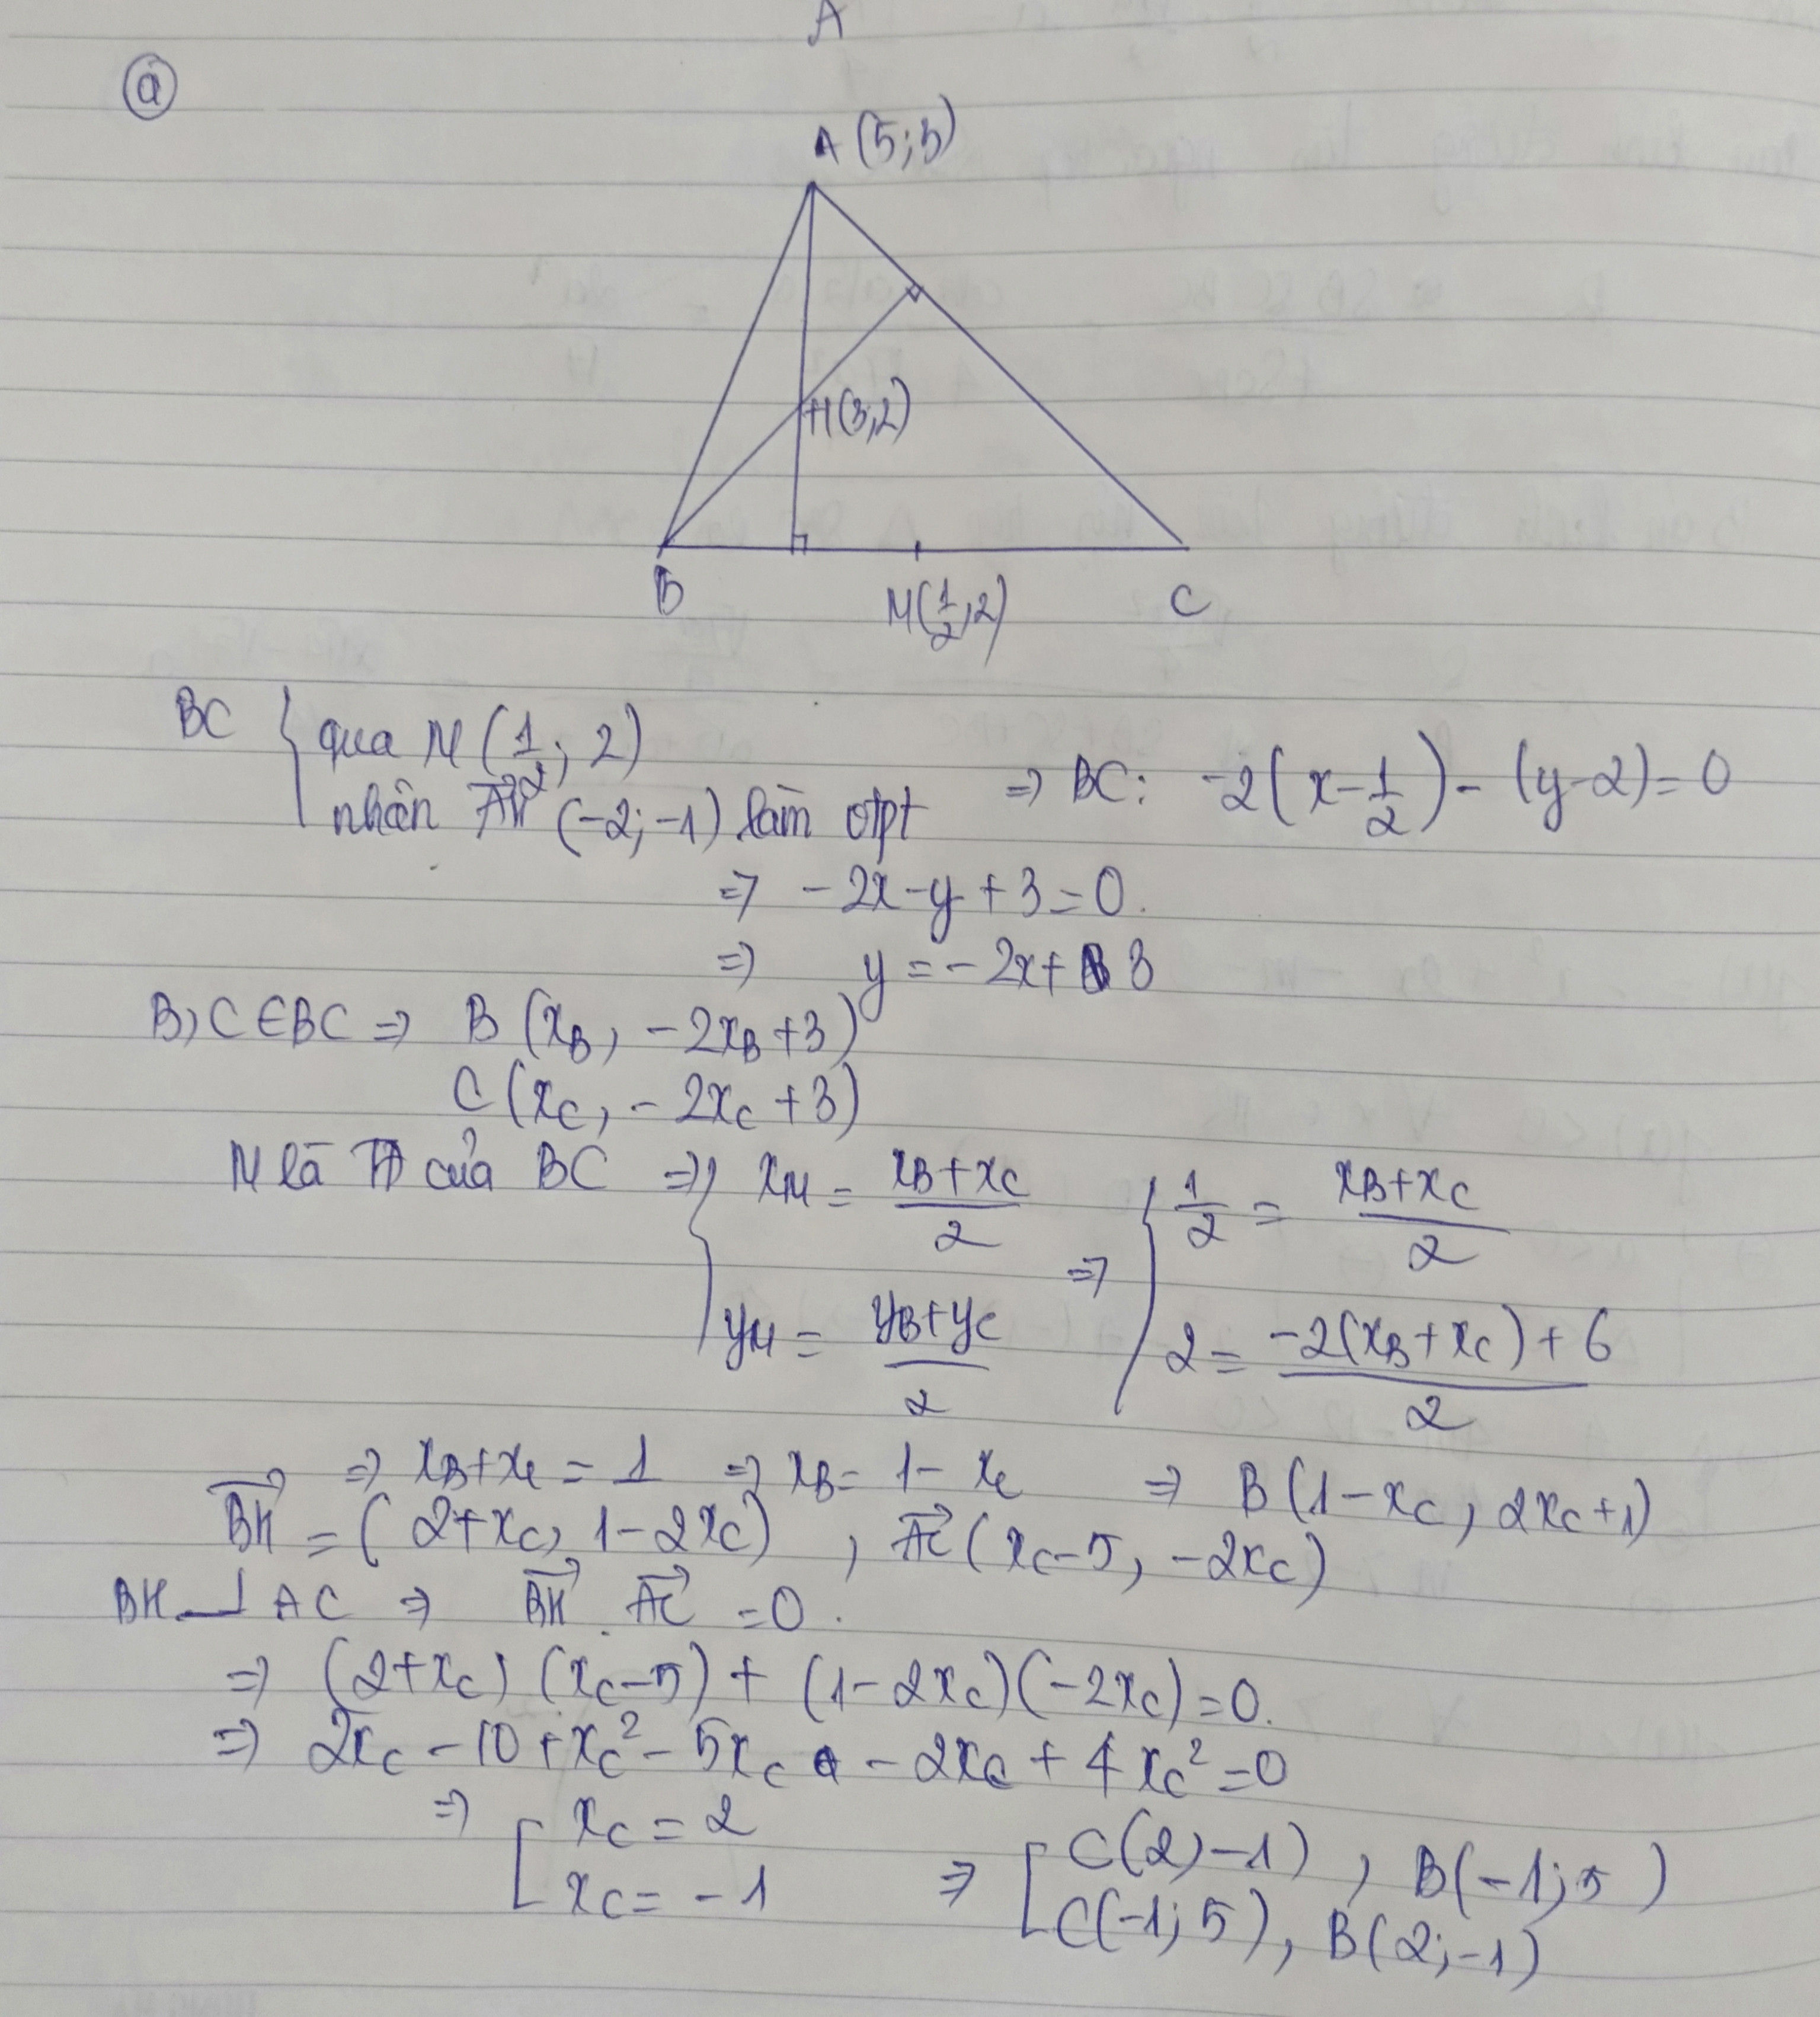 A
a
A (5;3)
H(3;2)
B
M(1/2;2)
C
BC { qua M (1/2; 2)
nhận AH (-2; -1) làm vtpt => BC: -2(x - 1/2) - (y-2) = 0
=> -2x - y + 3 = 0.
=> y = -2x + 3
B, C ∈ BC => B (xB, -2xB + 3)
C (xC, -2xC + 3)
M là TĐ của BC => { xM = (xB + xC)/2 => { 1/2 = (xB + xC)/2
yM = (yB + yC)/2 2 = (-2(xB + xC) + 6)/2
=> xB + xC = 1 => xB = 1 - xC => B (1 - xC, 2xC + 1)
BH = (2 + xC, 1 - 2xC), AC (xC - 5, -2xC)
BH ⊥ AC => BH . AC = 0.
=> (2 + xC) (xC - 5) + (1 - 2xC)(-2xC) = 0.
=> 2xC - 10 + xC² - 5xC - 2xC + 4xC² = 0
=> [ xC = 2 => [ C(2, -1), B(-1; 5)
xC = -1 C(-1; 5), B(2; -1)